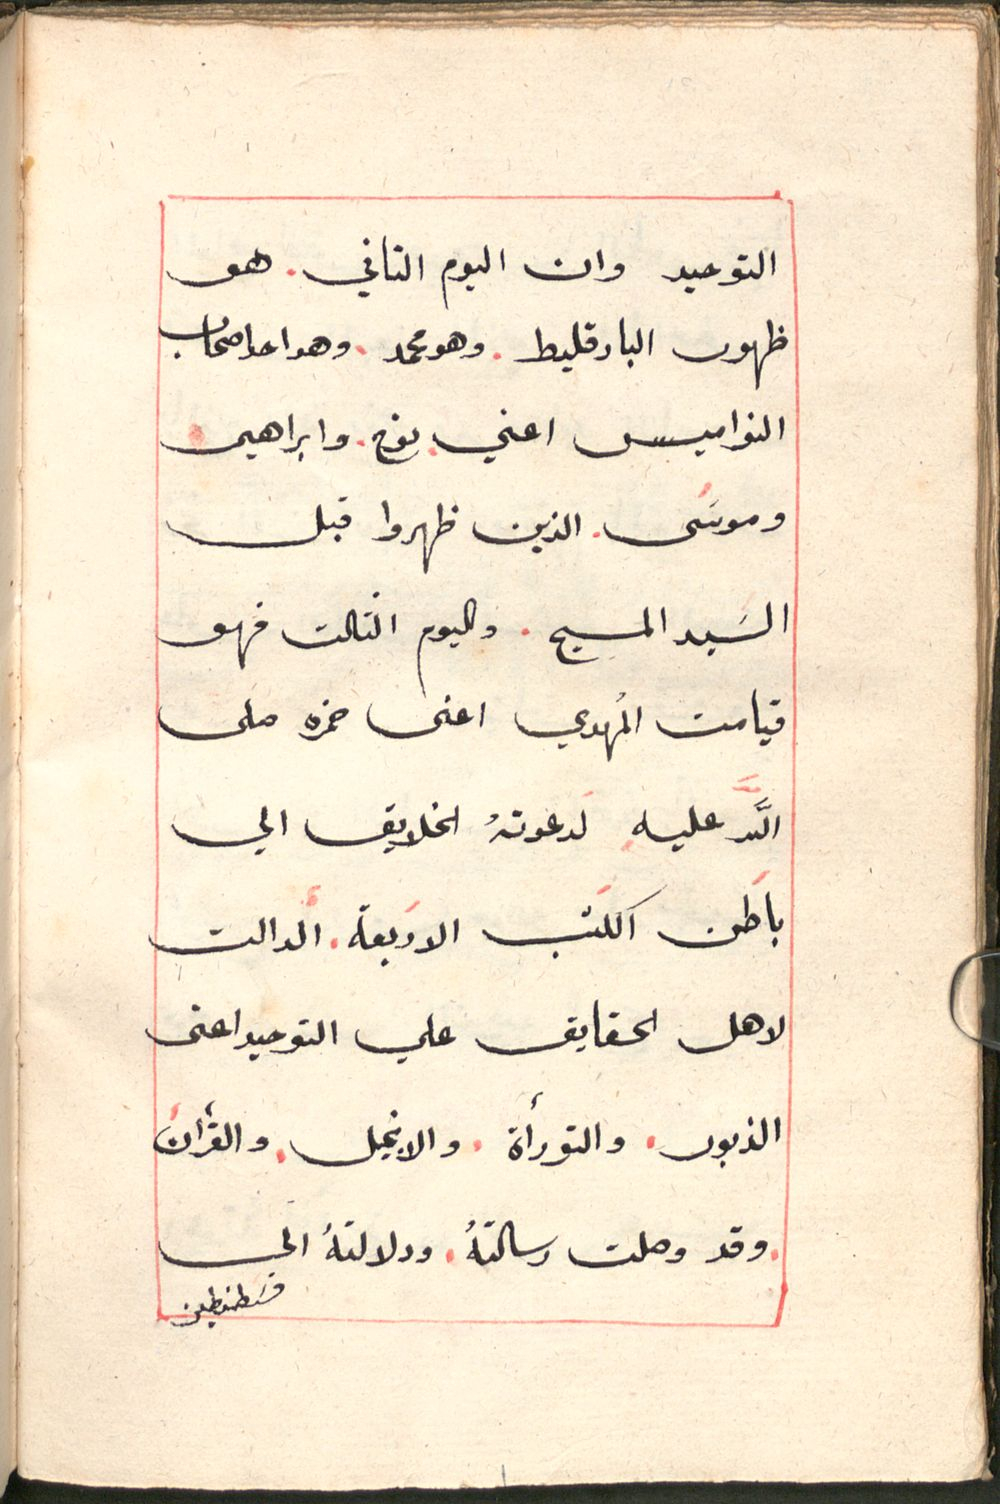 التوحيد وان اليوم التاني. هو
ظهور البارقليط. وهو محمد. وهو احد اصحاب
النواميس اعني. نوح. وابراهيم
وموسَى. الذين ظهروا قبل
السَيد المسيح. واليوم الثالت فهو
قيامت المُهدي اعنى حمزه صلى
اللَّه عليه لدعوتهُ الخلايق الي
باطن الكتب الاربعة. الدالت
لاهل الحقايق علي التوحيد اعنى
الذبور. والتورأة. والانجيل. والقرأن
. وقد وصلت رسالتهُ. ودلالتهُ الى
قسَطنطين